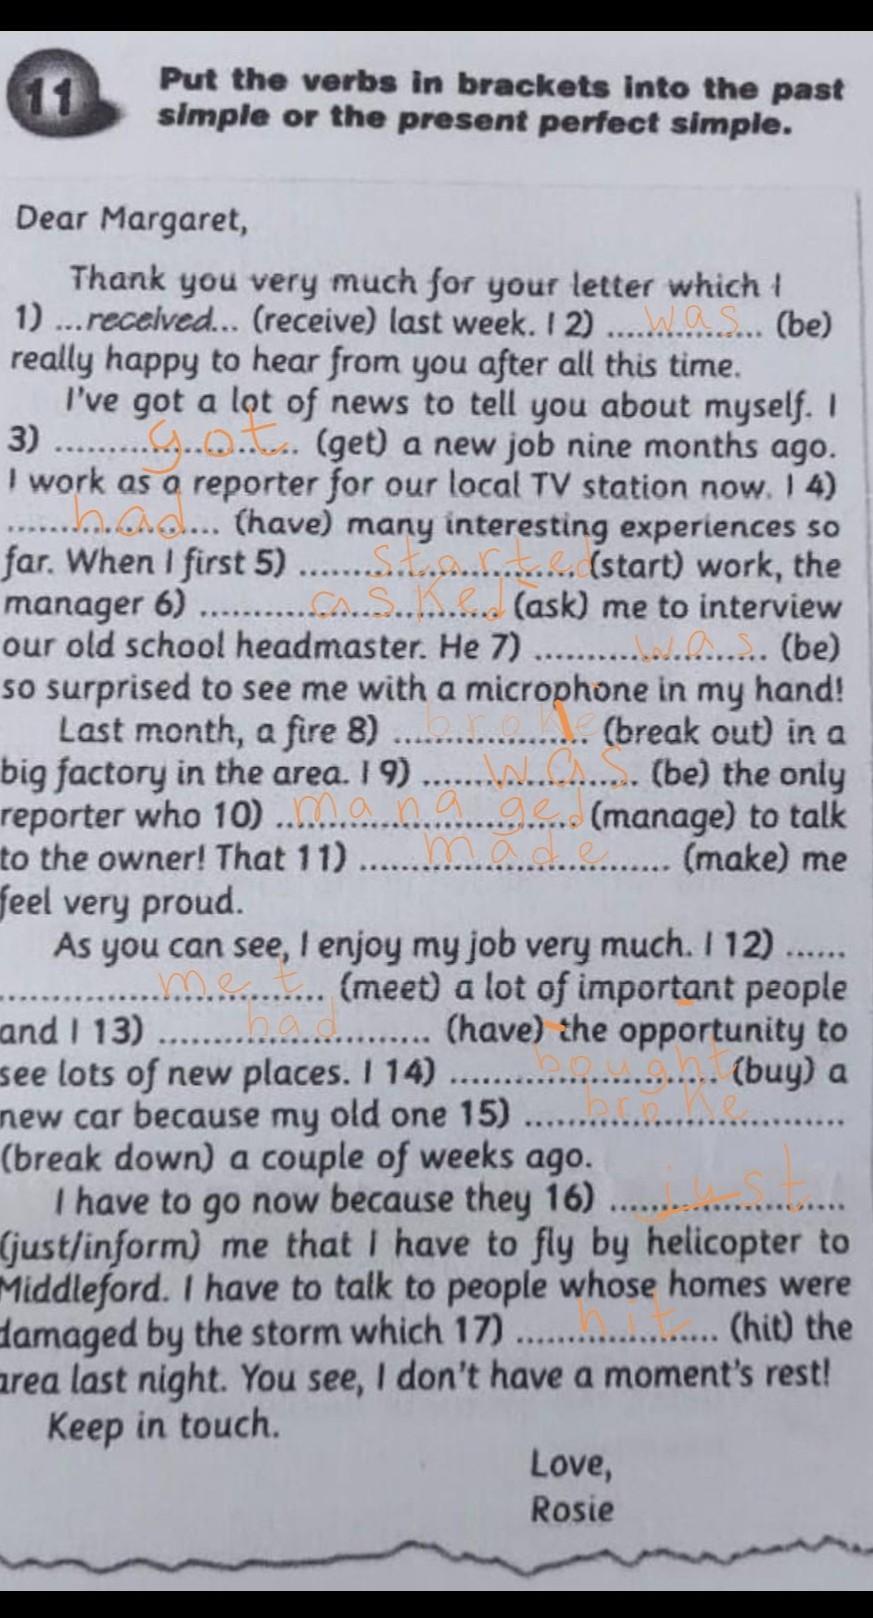 11
Put the verbs in brackets into the past
simple or the present perfect simple.
Dear Margaret,
Thank you very much for your letter which I
1) ...received... (receive) last week. I 2) ....was.... (be)
really happy to hear from you after all this time.
I've got a lot of news to tell you about myself. I
3) ....got.... (get) a new job nine months ago.
I work as a reporter for our local TV station now. I 4)
....had.... (have) many interesting experiences so
far. When I first 5) ....started.... (start) work, the
manager 6) ....asked.... (ask) me to interview
our old school headmaster. He 7) ....was.... (be)
so surprised to see me with a microphone in my hand!
Last month, a fire 8) ....broke.... (break out) in a
big factory in the area. I 9) ....was.... (be) the only
reporter who 10) ....managed.... (manage) to talk
to the owner! That 11) ....made.... (make) me
feel very proud.
As you can see, I enjoy my job very much. I 12) ......
....met.... (meet) a lot of important people
and I 13) ....had.... (have) the opportunity to
see lots of new places. I 14) ....bought.... (buy) a
new car because my old one 15) ....broke....
(break down) a couple of weeks ago.
I have to go now because they 16) ....just....
(just/inform) me that I have to fly by helicopter to
Middleford. I have to talk to people whose homes were
damaged by the storm which 17) ....hit.... (hit) the
area last night. You see, I don't have a moment's rest!
Keep in touch.
Love,
Rosie